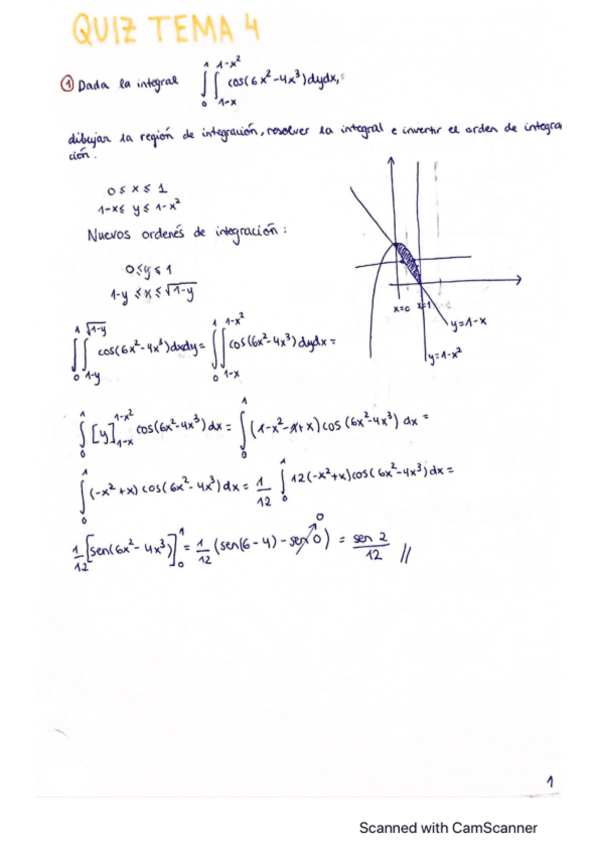 QUIZ TEMA 4
① Dada la integral ∫₀¹ ∫₁₋ₓ^(1-x²) cos(6x²-4x³) dydx,
dibujar la región de integración, resolver la integral e invertir el orden de integra
ción.
0 ≤ x ≤ 1
1-x ≤ y ≤ 1-x²
Nuevos ordenés de integración:
0 ≤ y ≤ 1
1-y ≤ x ≤ √(1-y)
x=0 x=1
y=1-x
y=1-x²
∫₀¹ ∫_(1-y)^(√(1-y)) cos(6x²-4x³) dxdy = ∫₀¹ ∫_(1-x)^(1-x²) cos(6x²-4x³) dydx =
∫₀¹ [y]_(1-x)^(1-x²) cos(6x²-4x³) dx = ∫₀¹ (1-x²-1+x) cos(6x²-4x³) dx =
∫₀¹ (-x²+x) cos(6x²-4x³) dx = 1/12 ∫₀¹ 12(-x²+x) cos(6x²-4x³) dx =
1/12 [sen(6x²-4x³)]₀¹ = 1/12 (sen(6-4) - sen 0) = sen 2/12 //
0
1
Scanned with CamScanner